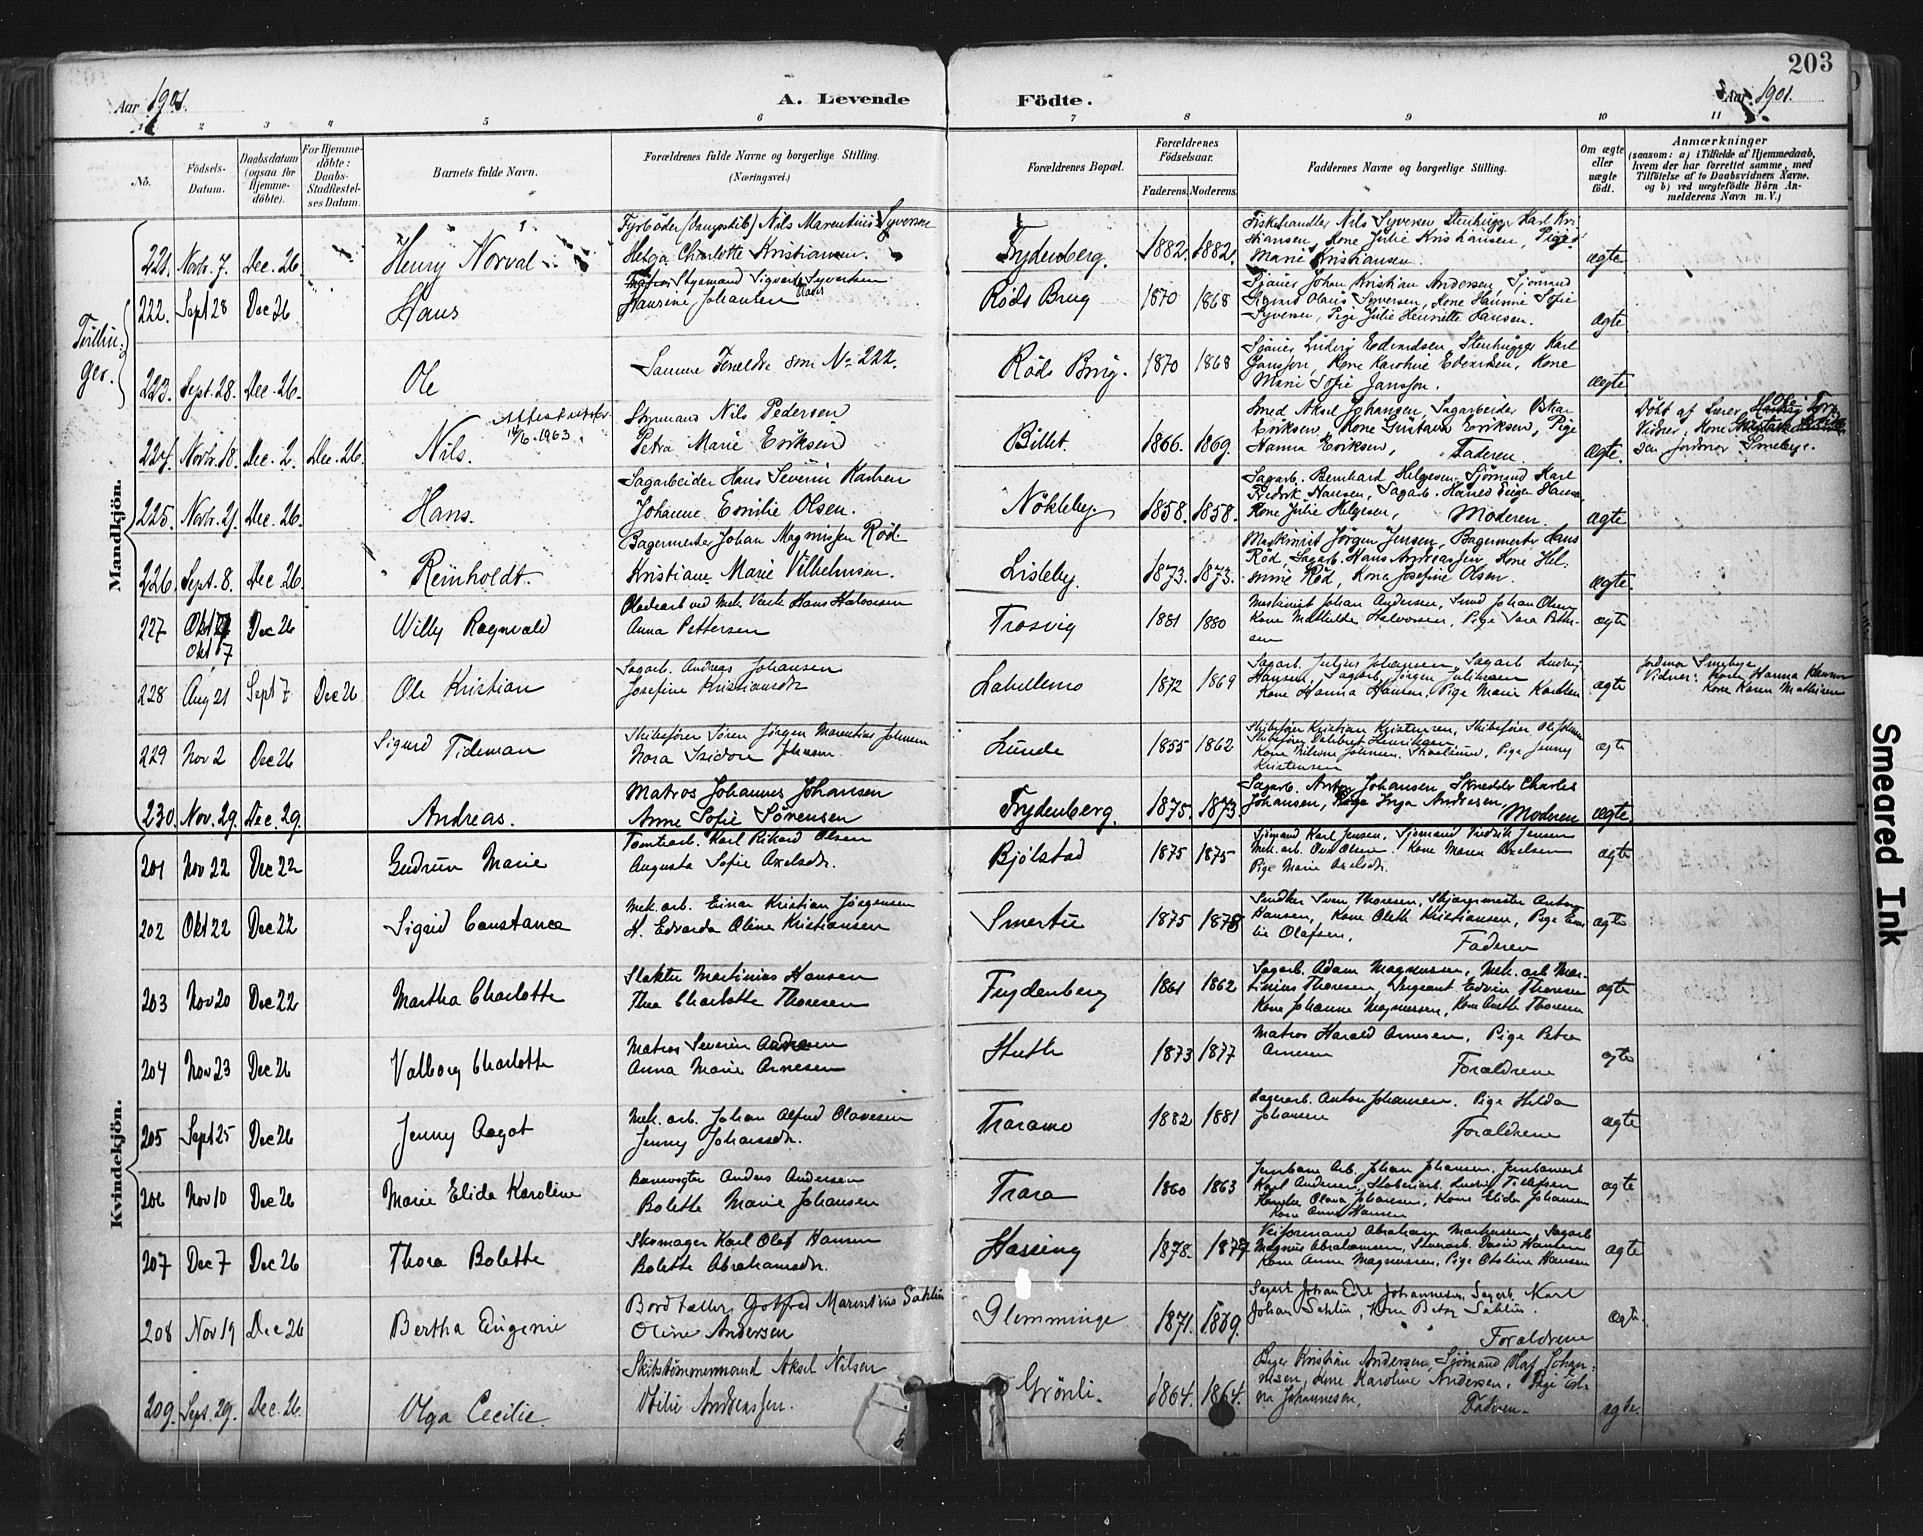 203
Aar 1901.
A. Levende Födte.
Aar 1901.
1 2 3 4 5 6 7 8 9 10 11
No.
Födsels-Datum.
Daabsdatum (ogsaa for Hjemme-döbte).
For Hjemme-döbte: Daabs-Stadfæstel-ses Datum.
Barnets fulde Navn.
Forældrenes fulde Navne og borgerlige Stilling. (Næringsvei.)
Forældrenes Bopæl.
Forældrenes Födselsaar.
Faderens. Moderens.
Faddernes Navne og borgerlige Stilling.
Om ægte eller uægte födt.
Anmærkninger
(saasom: a) i Tilfælde af Hjemmedaab, hvem der har forrettet samme, med Tilföielse af to Daabsvidners Navne, og b) ved uægtefödte Börn An-melderens Navn m. V.)
Mandkjön.
Tvillin-
ger.
221. Novbr. 7. Dec. 26. Henry Norval
Nils Marentius Syversen
Helga Charlotte Kristiansen.
Frydenberg. 1882. 1882.
Fiskehandler Nils Syversen Stenhugger Karl Kri-
stiansen, Kone Julie Kristiansen, Pige
Marie Kristiansen. ægte.
222. Sept 28 Dec 26 Hans
Haurine Johansen
Röds Brug 1870 1868
Johan Kristian Andersen, Sjömand
Olaus Syversen, Kone Haurine Sofie
Syversen, Pige Julie Henriette Hansen. ægte
223. Sept. 28. Dec. 26. Ole
Samme Forældre som No 222.
Röds Brug. 1870 1868
Ludvig Edvardsen, Stenhugger Karl
Jansson, Kone Karoline Edvardsen, Kone
Marie Sofie Jansson. ægte
224. Novbr. 18. Dec. 2. Dec. 26. Nils.
1963.
Sörmand Nils Pedersen
Petra Marie Eriksen
Billet. 1866. 1869.
Smed Aksel Johansen, Sagarbeider Oskar
Eriksen, Kone Gustava Eriksen, Pige
Hanna Eriksen, Faderen. ægte.
Döbt af Lærer
Vidner, Kone
Jordmor Smebye.
225. Novbr. 2. Dec. 26. Hans.
Sagarbeider Hans Severin Karlsen
Johanne Emilie Olsen.
Nökleby. 1858. 1858.
Sagarb. Bernhard Helgesen, Sjömand Karl
Fredrik Hansen, Sagarb.
Kone Julie Helgesen, Moderen. ægte
226. Sept. 8. Dec. 26. Reinholdt.
Bagermester Johan Magnussen Röd.
Kristiane Marie Vilhelmsen.
Lisleby. 1873. 1873.
Maskinist Jörgen Jensen, Bagermester Hans
Röd, Sagarb. Hans Andreassen, Kone Hel-
mine Röd, Kone Josefine Olsen. ægte.
227 Okt 7 Dec 26 Willy Ragnvald
Okt 7
Anna Pettersen
Trosvig 1881 1880
Maskinist Johan Andersen, Smed Johan Olsen
Kone Mathilde Halvorsen, Pige Sara Petter-
sen ægte
228 Aug 21 Sept 7 Dec 26 Ole Kristian
Sagarb. Andreas Johansen
Josefine Kristiansdr
Labellemo 1872 1869
Sagarb. Julius Johansen, Sagarb Ludvig
Hansen, Sagarb Jörgen Juliussen
Kone Hanna Hansen, Pige Marie Karlsen ægte
Jordmor Smebye
Vidner: Hanna Hansen
Kone Karen Mathisen
229 Nov 2 Dec 26 Sigurd Tideman
Skibsförer Sören Jörgen Marentius Johnsen
Nora Isidore Johnsen
Lunde 1855 1862
Skibsförer Kristian Kristensen, Skibsförer Ole Johnsen
Skibsförer Henriksen
Pige Jenny
Kristensen ægte
230. Nov. 29. Dec. 29. Andreas.
Matros Johannes Johansen
Anne Sofie Sörensen
Frydenberg. 1875. 1873.
Sagarb. Anton Johansen, Skrædder Charles
Johansen, Inga Andresen, Moderen ægte
Kvindekjön.
201 Nov 22 Dec 22 Gudrun Marie
Tomtearb. Karl Rikard Olsen
Augusta Sofie Axelsdr.
Bjölstad 1875 1875
Sjömand Karl Jensen, Sjömand Fredrik Jensen
Mek. arb. Olsen. Kone Maren Axelsen
Pige Marie Axelsdr. ægte
202 Okt 22 Dec 22 Sigrid Constance
Mek. arb. Einar Kristian Jörgensen
H. Edvarda Oline Kristiansen
Smertu 1875 1878
Snedker Sven Thoresen, Anton
Hansen, Kone Oleth Kristiansen, Pige Emi-
lie Olafsen, Faderen ægte
203 Nov 20 Dec 22 Martha Charlotte
Slakter Martinius Hansen
Thea Charlotte Thoresen
Frydenberg 1861 1862
Sagarb. Adam Magnussen, Mek. arb Mar-
tinius Thoresen, Sergeant Edvin Thoresen
Kone Johanne Magnussen, Kone Anette Thoresen ægte
204 Nov 23 Dec 26 Valborg Charlotte
Matros Severin
Anna Marie Arnesen
1873 1877
Matros Harald Arnesen, Pige Petra
Arnesen Forældrene ægte
205 Sept 25 Dec 26 Jenny Aagot
Mek. arb. Johan Alfred Olavesen
Jenny Johansdr.
Traramo 1882 1881
Lagerarb. Anton Johansen. Pige Hilda
Johansen Forældrene ægte
206 Nov 10 Dec 26 Marie Elida Karoline
Banevogter Anders Andersen
Bolette Marie Johansen
Trara 1860 1863
Jernbane Arb. Johan Johansen,
Karl Andersen, Ludvig
Olava Johansen, Kone Elida Johansen
Kone Anna Hansen ægte
207 Dec 7 Dec 26 Thora Bolette
Skomager Karl Olaf Hansen
Bolette Abrahamsdr.
Hassing 1878. 1877
Veiformand Abraham Martinsen, Sagarb
Magnus Abrahamsen, David Hansen
Kone Anne Magnussen, Pige Otoline Hansen ægte
208 Nov 19 Dec 26 Bertha Eugenie
Bordtæller Gotfred Marentius Sahlin
Oline Andersen
Glemminge 1871. 1869.
Sagarb Johan Johannesen, Sagarb. Karl
Johan Sahlin, Kone Sahlin.
Forældrene ægte
209. Sept. 29. Dec. 26. Olga Cecilie.
Skibstömmermand Aksel Nilsen
Otilie Andreassen.
Grönli. 1864. 1864.
Kristian Andersen, Sjömand Olaf Johan-
nesen, Kone Karoline Andersen, Pige
Johannesen, Faderen. ægte.
Smeared Ink